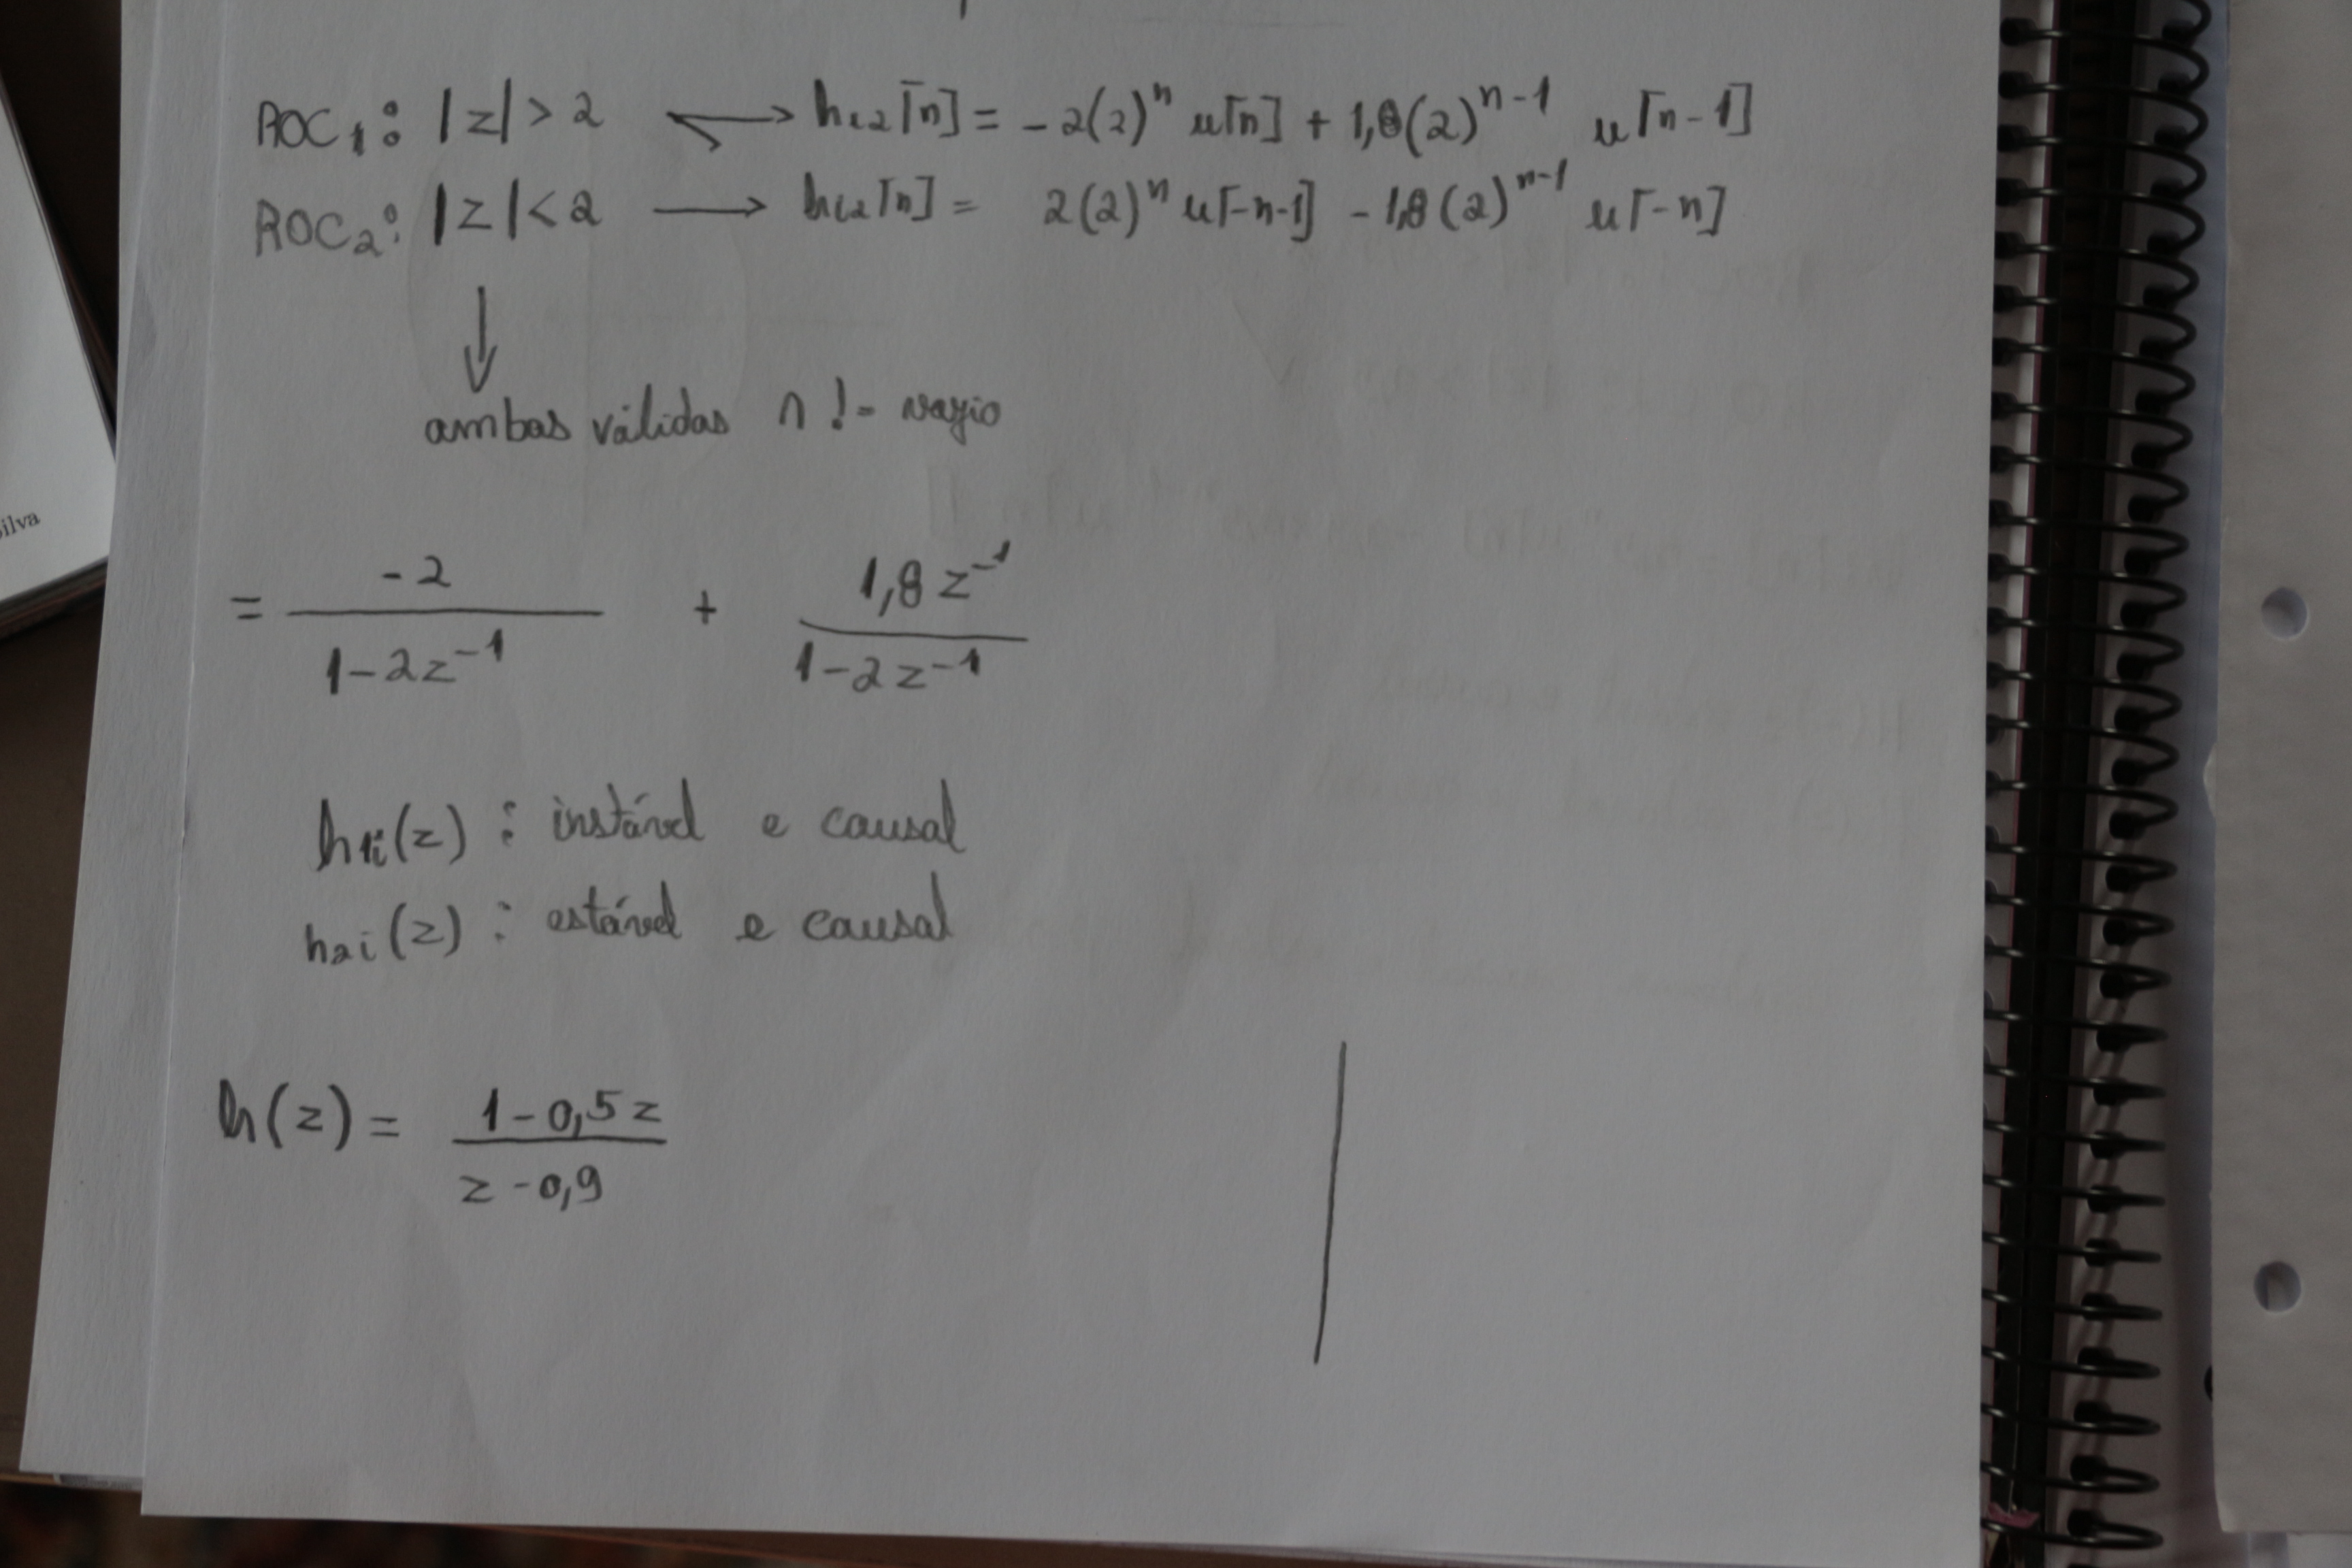 ROC₁: |z| > 2 → hᵢ₂[n] = -2(2)ⁿ u[n] + 1,8(2)ⁿ⁻¹ u[n-1]
ROC₂: |z| < 2 → hᵢ₂[n] = 2(2)ⁿ u[-n-1] - 1,8(2)ⁿ⁻¹ u[-n]
↓
ambas válidas ∩ != vazio
= -2 / (1-2z⁻¹) + 1,8z⁻¹ / (1-2z⁻¹)
h₁ᵢ(z): instável e causal
h₂ᵢ(z): estável e causal
h(z) = (1-0,5z) / (z-0,9)
silva